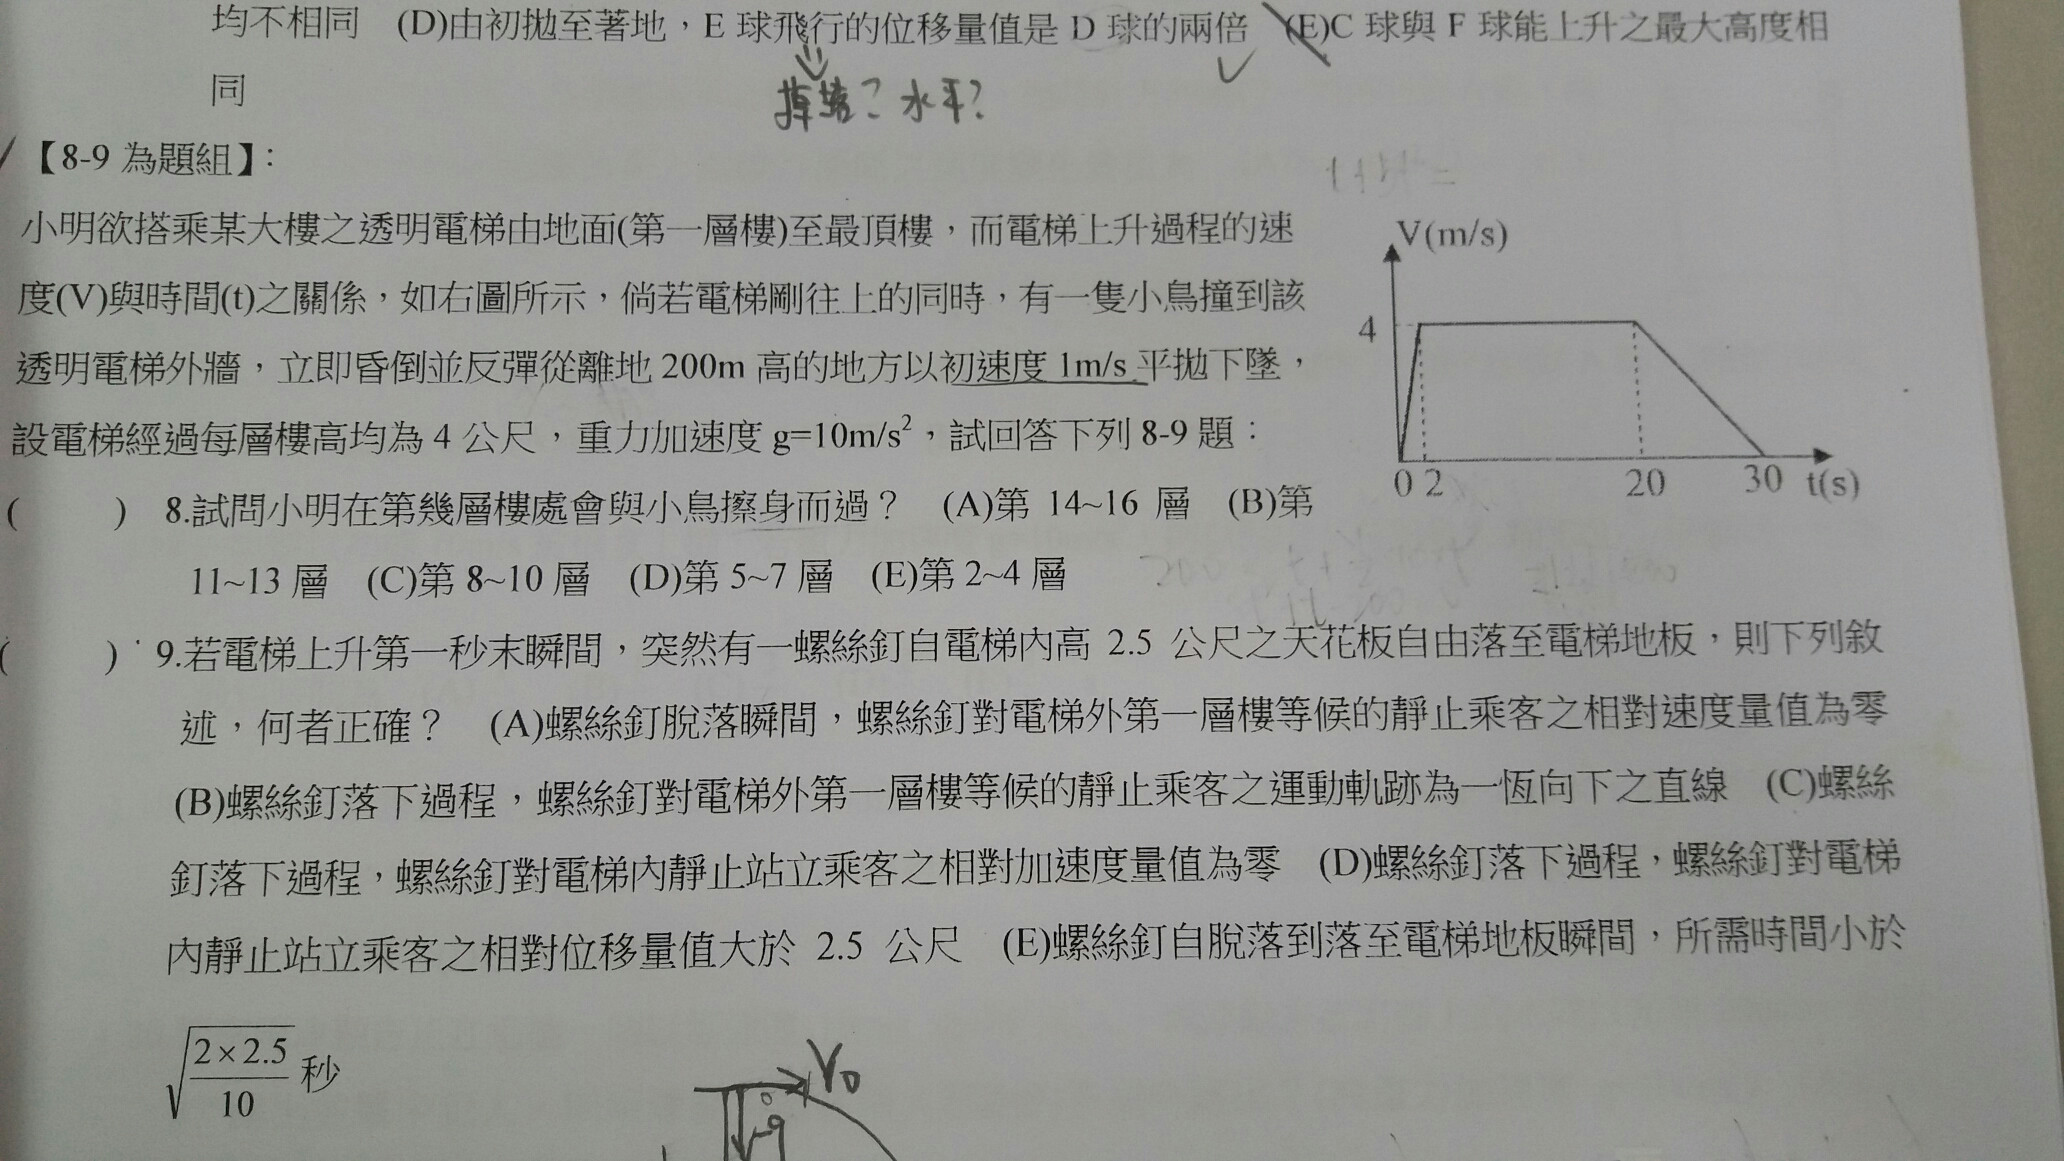 均不相同　(D)由初拋至著地，E 球飛行的位移量值是 D 球的兩倍　(E)C 球與 F 球能上升之最大高度相
同
掉落？水平？
【8-9 為題組】：
小明欲搭乘某大樓之透明電梯由地面(第一層樓)至最頂樓，而電梯上升過程的速
度(V)與時間(t)之關係，如右圖所示，倘若電梯剛往上的同時，有一隻小鳥撞到該
透明電梯外牆，立即昏倒並反彈從離地 200m 高的地方以初速度 1m/s 平拋下墜，
設電梯經過每層樓高均為 4 公尺，重力加速度 g=10m/s²，試回答下列 8-9 題：
V(m/s)
4
0 2 20 30 t(s)
(　　) 8.試問小明在第幾層樓處會與小鳥擦身而過？　(A)第 14~16 層　(B)第
11~13 層　(C)第 8~10 層　(D)第 5~7 層　(E)第 2~4 層
(　　) 9.若電梯上升第一秒末瞬間，突然有一螺絲釘自電梯內高 2.5 公尺之天花板自由落至電梯地板，則下列敘
述，何者正確？　(A)螺絲釘脫落瞬間，螺絲釘對電梯外第一層樓等候的靜止乘客之相對速度量值為零
(B)螺絲釘落下過程，螺絲釘對電梯外第一層樓等候的靜止乘客之運動軌跡為一恆向下之直線　(C)螺絲
釘落下過程，螺絲釘對電梯內靜止站立乘客之相對加速度量值為零　(D)螺絲釘落下過程，螺絲釘對電梯
內靜止站立乘客之相對位移量值大於 2.5 公尺　(E)螺絲釘自脫落到落至電梯地板瞬間，所需時間小於
√(2×2.5/10) 秒
V₀
-g